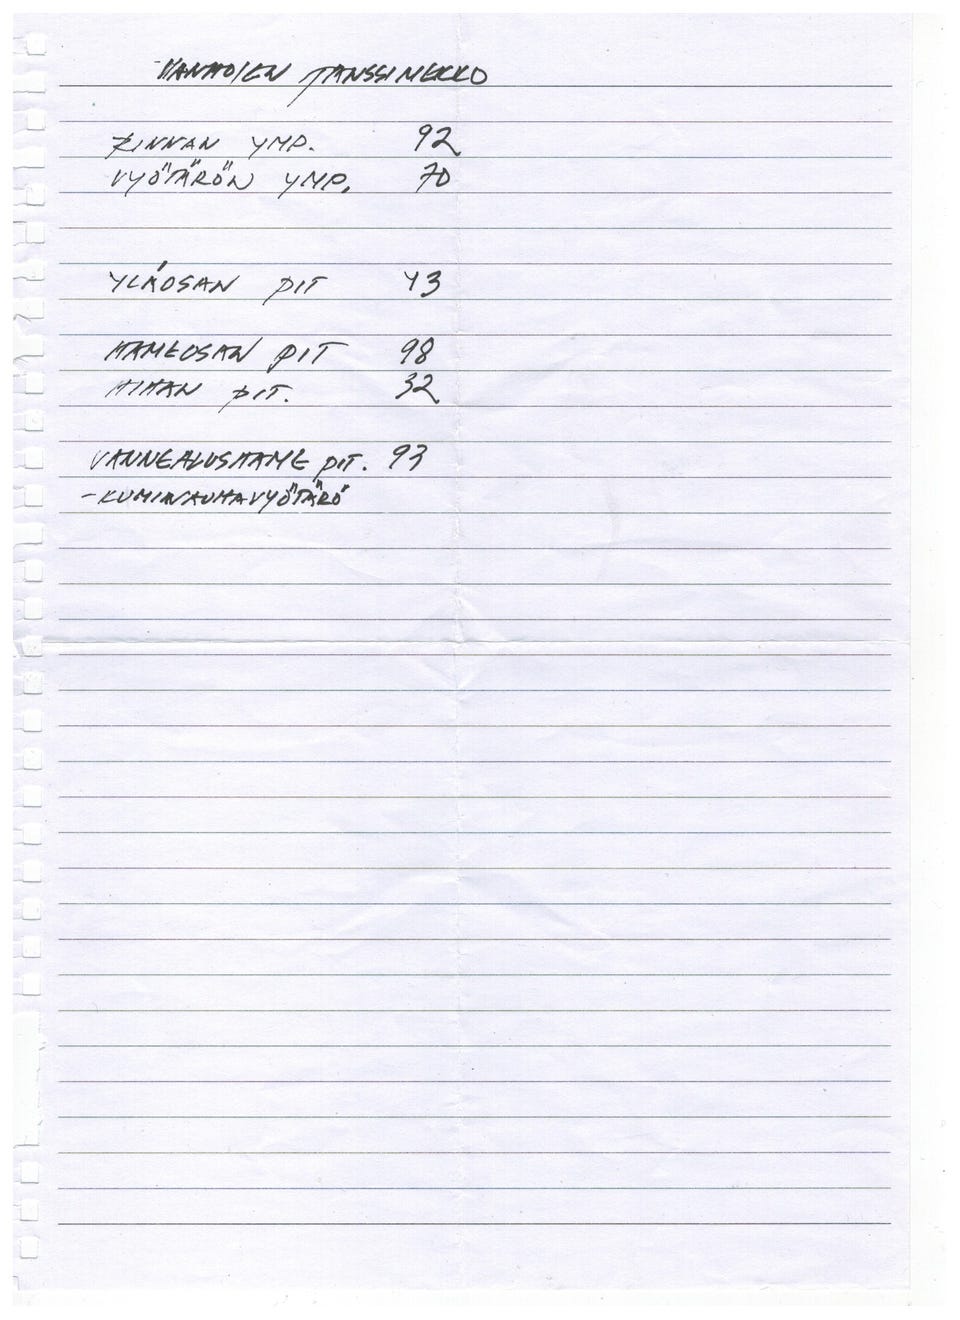 VANHOJEN TANSSIMEKKO
RINNAN YMP. 92
VYÖTÄRÖN YMP. 70
YLÄOSAN PIT 43
HAMEOSAN PIT 98
HIHAN PIT. 32
VANNEALUSHAME PIT. 93
-KUMINAUHAVYÖTÄRÖ